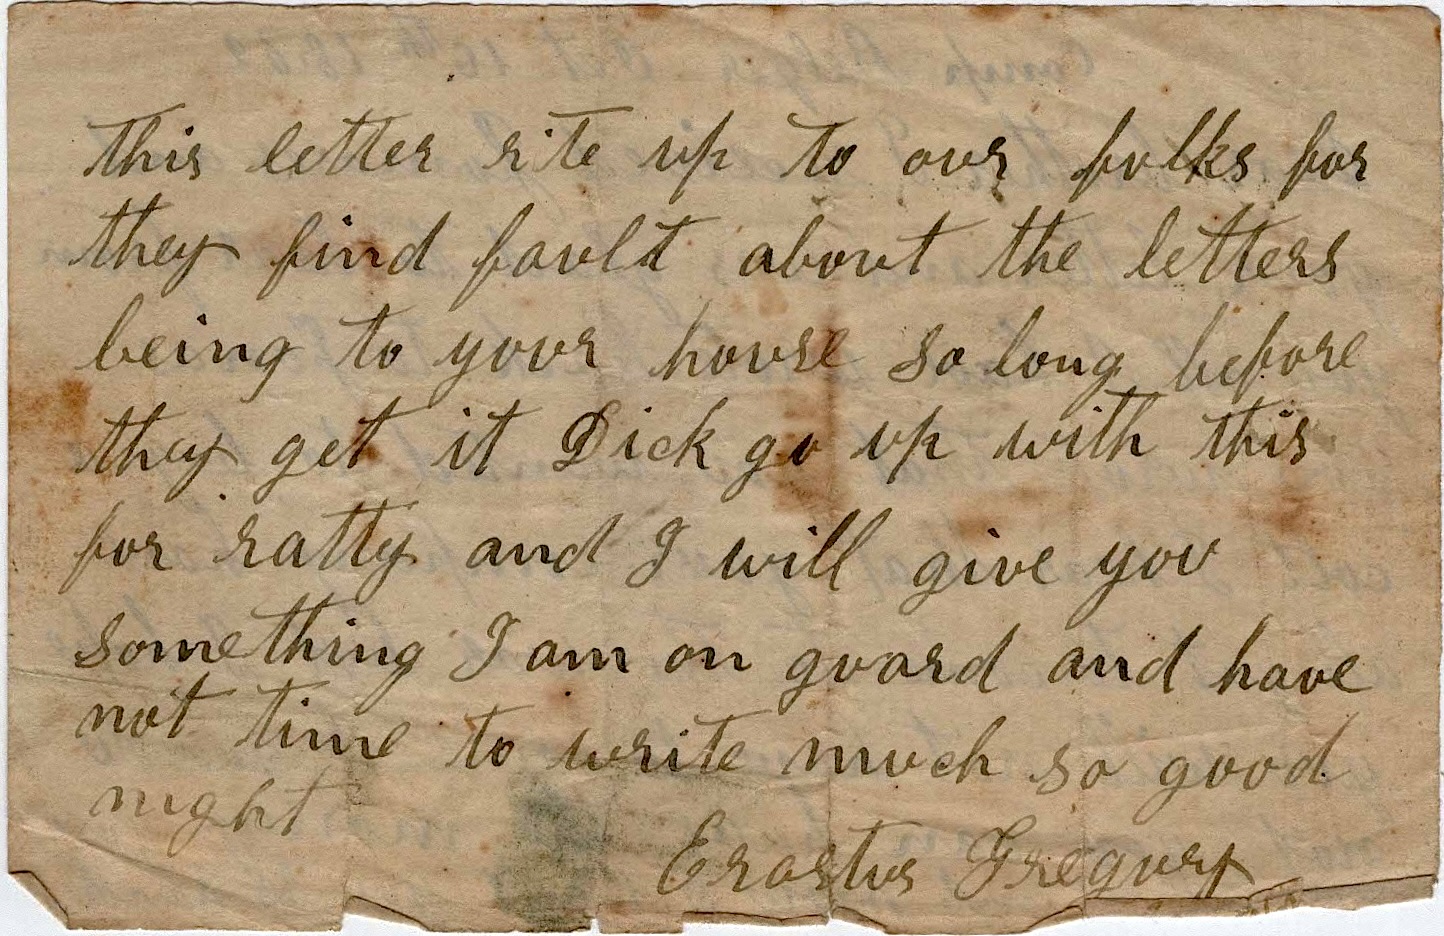 this letter rite up to our folks for
they find fault about the letters
being to your house so long before
they get it Dick go up with this
for ratty and I will give you
something I am on guard and have
not time to write much so good
night
Erastus Gregory